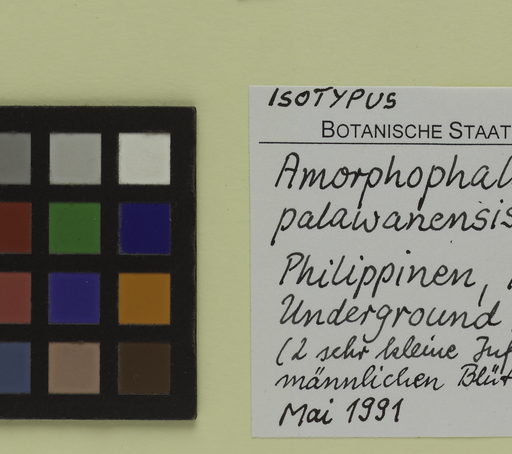 ISOTYPUS
BOTANISCHE STAAT
Amorphophal
palawanensis
Philippinen,
Underground
(2 sehr kleine Juf
männlichen Blüt
Mai 1991